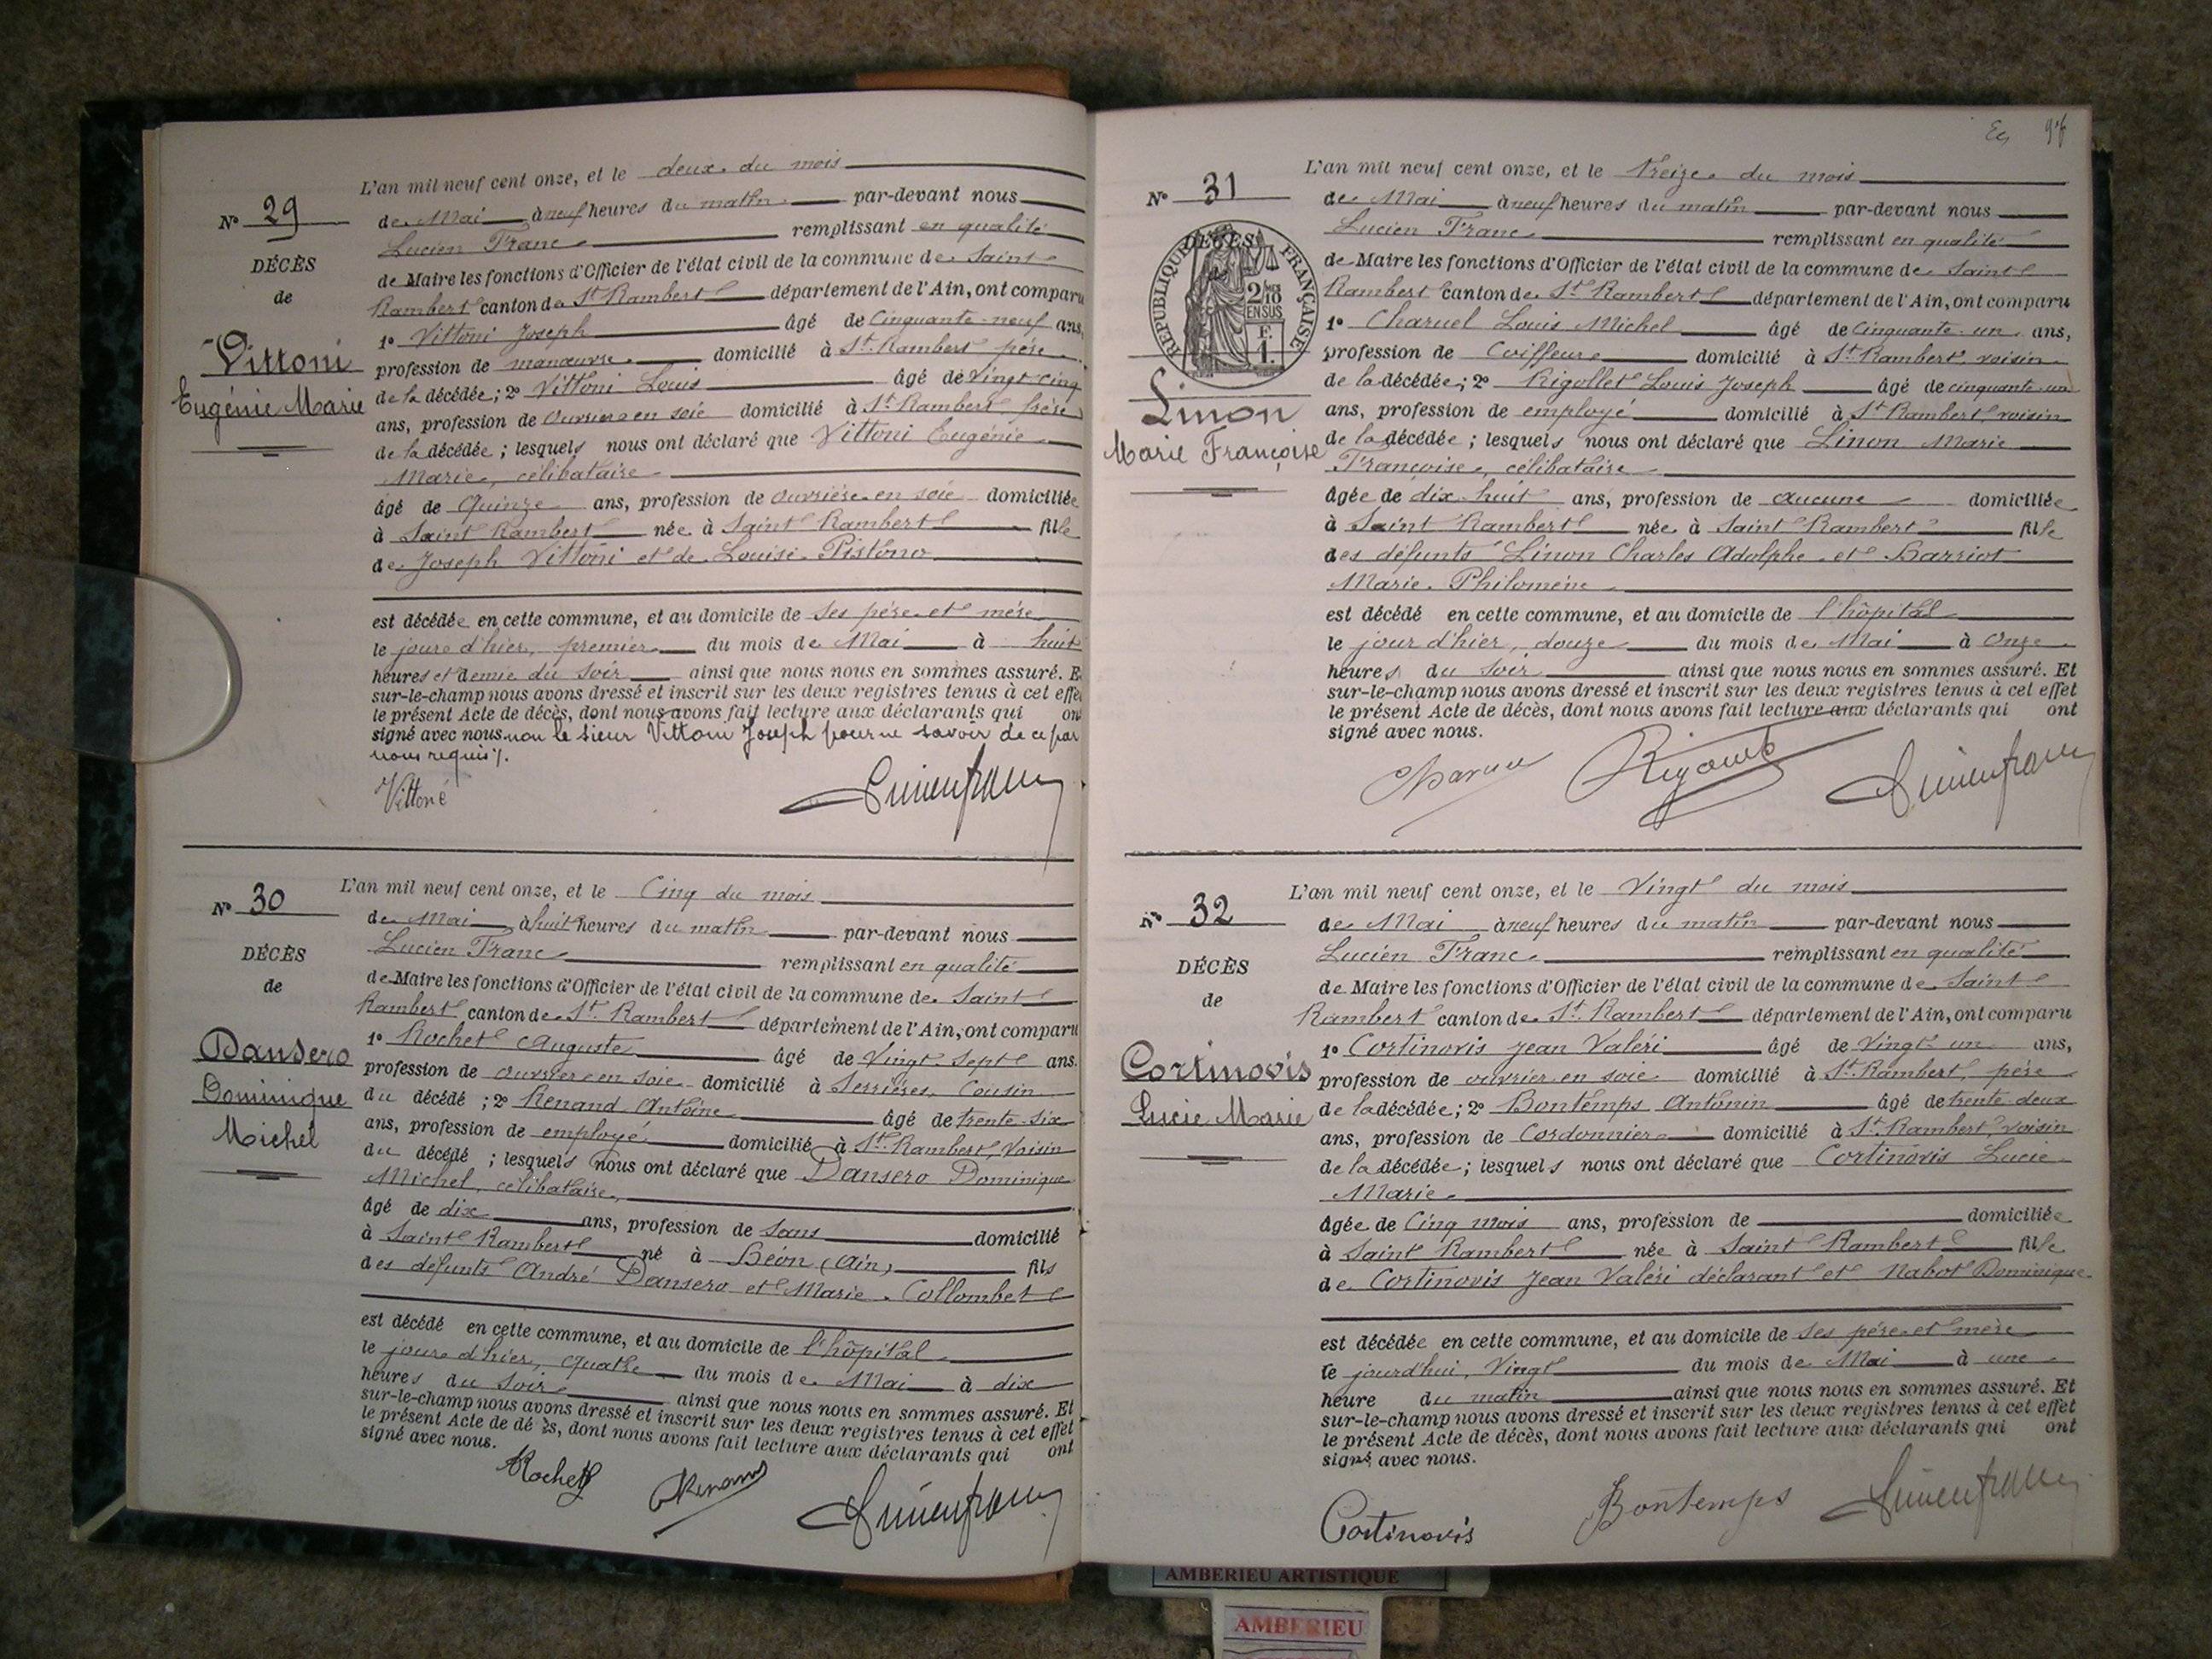 N° 29
DÉCÈS
de
Vittoni
Eugénie Marie
L'an mil neuf cent onze, et le deux du mois
de Mai à neuf heures du matin par-devant nous
Lucien Franc remplissant en qualité
de Maire les fonctions d'Officier de l'état civil de la commune de Saint
Rambert canton de St Rambert département de l'Ain, ont comparu
1° Vittoni Joseph âgé de Cinquante-neuf ans,
profession de manœuvre domicilié à St Rambert père
de la décédée; 2° Vittoni Louis âgé de vingt cinq
ans, profession de Ouvrier en soie domicilié à St Rambert frère
de la décédée; lesquels nous ont déclaré que Vittoni Eugénie
Marie, célibataire
âgé de Quinze ans, profession de ouvrière en soie domiciliée
à Saint Rambert née à Saint Rambert fille
de Joseph Vittoni et de Louise Pistono
est décédée en cette commune, et au domicile de ses père et mère
le jour d'hier, premier du mois de Mai à huit
heures et demie du soir ainsi que nous nous en sommes assuré. E
sur-le-champ nous avons dressé et inscrit sur les deux registres tenus à cet effe
le présent Acte de décès, dont nous avons fait lecture aux déclarants qui on
signé avec nous. non le sieur Vittoni Joseph pour ne savoir de ce par
nous requis.
Vittoni
Lucien Franc
N° 30
DÉCÈS
de
Dansero
Dominique
Michel
L'an mil neuf cent onze, et le Cinq du mois
de Mai à huit heures du matin par-devant nous
Lucien Franc remplissant en qualité
de Maire les fonctions d'Officier de l'état civil de la commune de Saint
Rambert canton de St Rambert département de l'Ain, ont comparu
1° Rochet Auguste âgé de Vingt Sept ans.
profession de ouvrier en soie domicilié à Serrières, Cousin
du décédé; 2° Renand Antoine âgé de trente-six
ans, profession de employé domicilié à St Rambert, Voisin
du décédé; lesquels nous ont déclaré que Dansero Dominique
Michel, célibataire,
âgé de dix ans, profession de Sans domicilié
à Saint Rambert né à Béon (Ain) fils
des défunts André Dansero et Marie Collombet
est décédé en cette commune, et au domicile de l'hôpital
le jour d'hier, quatre du mois de Mai à dix
heures du soir ainsi que nous nous en sommes assuré. Et
sur-le-champ nous avons dressé et inscrit sur les deux registres tenus à cet effet
le présent Acte de dé ès, dont nous avons fait lecture aux déclarants qui ont
signé avec nous.
Rochet
Renand
Lucien Franc
N° 31
RÉPUBLIQUE FRANÇAISE
DÉCÈS
2/10
EN SUS
F.
1.
Linon
Marie Françoise
L'an mil neuf cent onze, et le Treize du mois
de Mai à neuf heures du matin par-devant nous
Lucien Franc remplissant en qualité
de Maire les fonctions d'Officier de l'état civil de la commune de Saint
Rambert canton de St Rambert département de l'Ain, ont comparu
1° Charuel Louis Michel âgé de Cinquante un ans,
profession de Coiffeur domicilié à St Rambert voisin
de la décédée; 2° Rigollet Louis Joseph âgé de cinquante un
ans, profession de employé domicilié à St Rambert, voisin
de la décédée; lesquels nous ont déclaré que Linon Marie
Françoise, célibataire
âgée de dix-huit ans, profession de aucune domiciliée
à Saint Rambert née à Saint Rambert fille
des défunts Linon Charles Adolphe et Barriot
Marie Philomène
est décédé en cette commune, et au domicile de l'hôpital
le jour d'hier, douze du mois de Mai à Onze
heures du soir ainsi que nous nous en sommes assuré. Et
sur-le-champ nous avons dressé et inscrit sur les deux registres tenus à cet effet
le présent Acte de décès, dont nous avons fait lecture aux déclarants qui ont
signé avec nous.
Lucien Franc
N° 32
DÉCÈS
de
Cortinovis
Lucie Marie
L'an mil neuf cent onze, et le Vingt du mois
de Mai à neuf heures du matin par-devant nous
Lucien Franc remplissant en qualité
de Maire les fonctions d'Officier de l'état civil de la commune de Saint
Rambert canton de St Rambert département de l'Ain, ont comparu
1° Cortinovis Jean Valéri âgé de Vingt un ans,
profession de ouvrier en soie domicilié à St Rambert, père
de la décédée; 2° Bontemps Antonin âgé de trente-deux
ans, profession de Cordonnier domicilié à St Rambert, voisin
de la décédée; lesquels nous ont déclaré que Cortinovis Lucie
Marie
âgée de Cinq mois ans, profession de domiciliée
à Saint Rambert née à Saint Rambert fille
de Cortinovis Jean Valéri déclarant et Nabot Dominique
est décédée en cette commune, et au domicile de ses père et mère
le jourd'hui, Vingt du mois de Mai à une
heure du matin ainsi que nous nous en sommes assuré. Et
sur-le-champ nous avons dressé et inscrit sur les deux registres tenus à cet effet
le présent Acte de décès, dont nous avons fait lecture aux déclarants qui ont
signé avec nous.
Cortinovis
Bontemps
Lucien Franc
AMBERIEU ARTISTIQUE
AMBERIEU